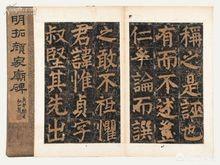 稱之是誣也
有而不述豈
仁乎論而譔
之敢不祗懼
君諱惟貞字
叔堅其先出
明拓顏家廟碑